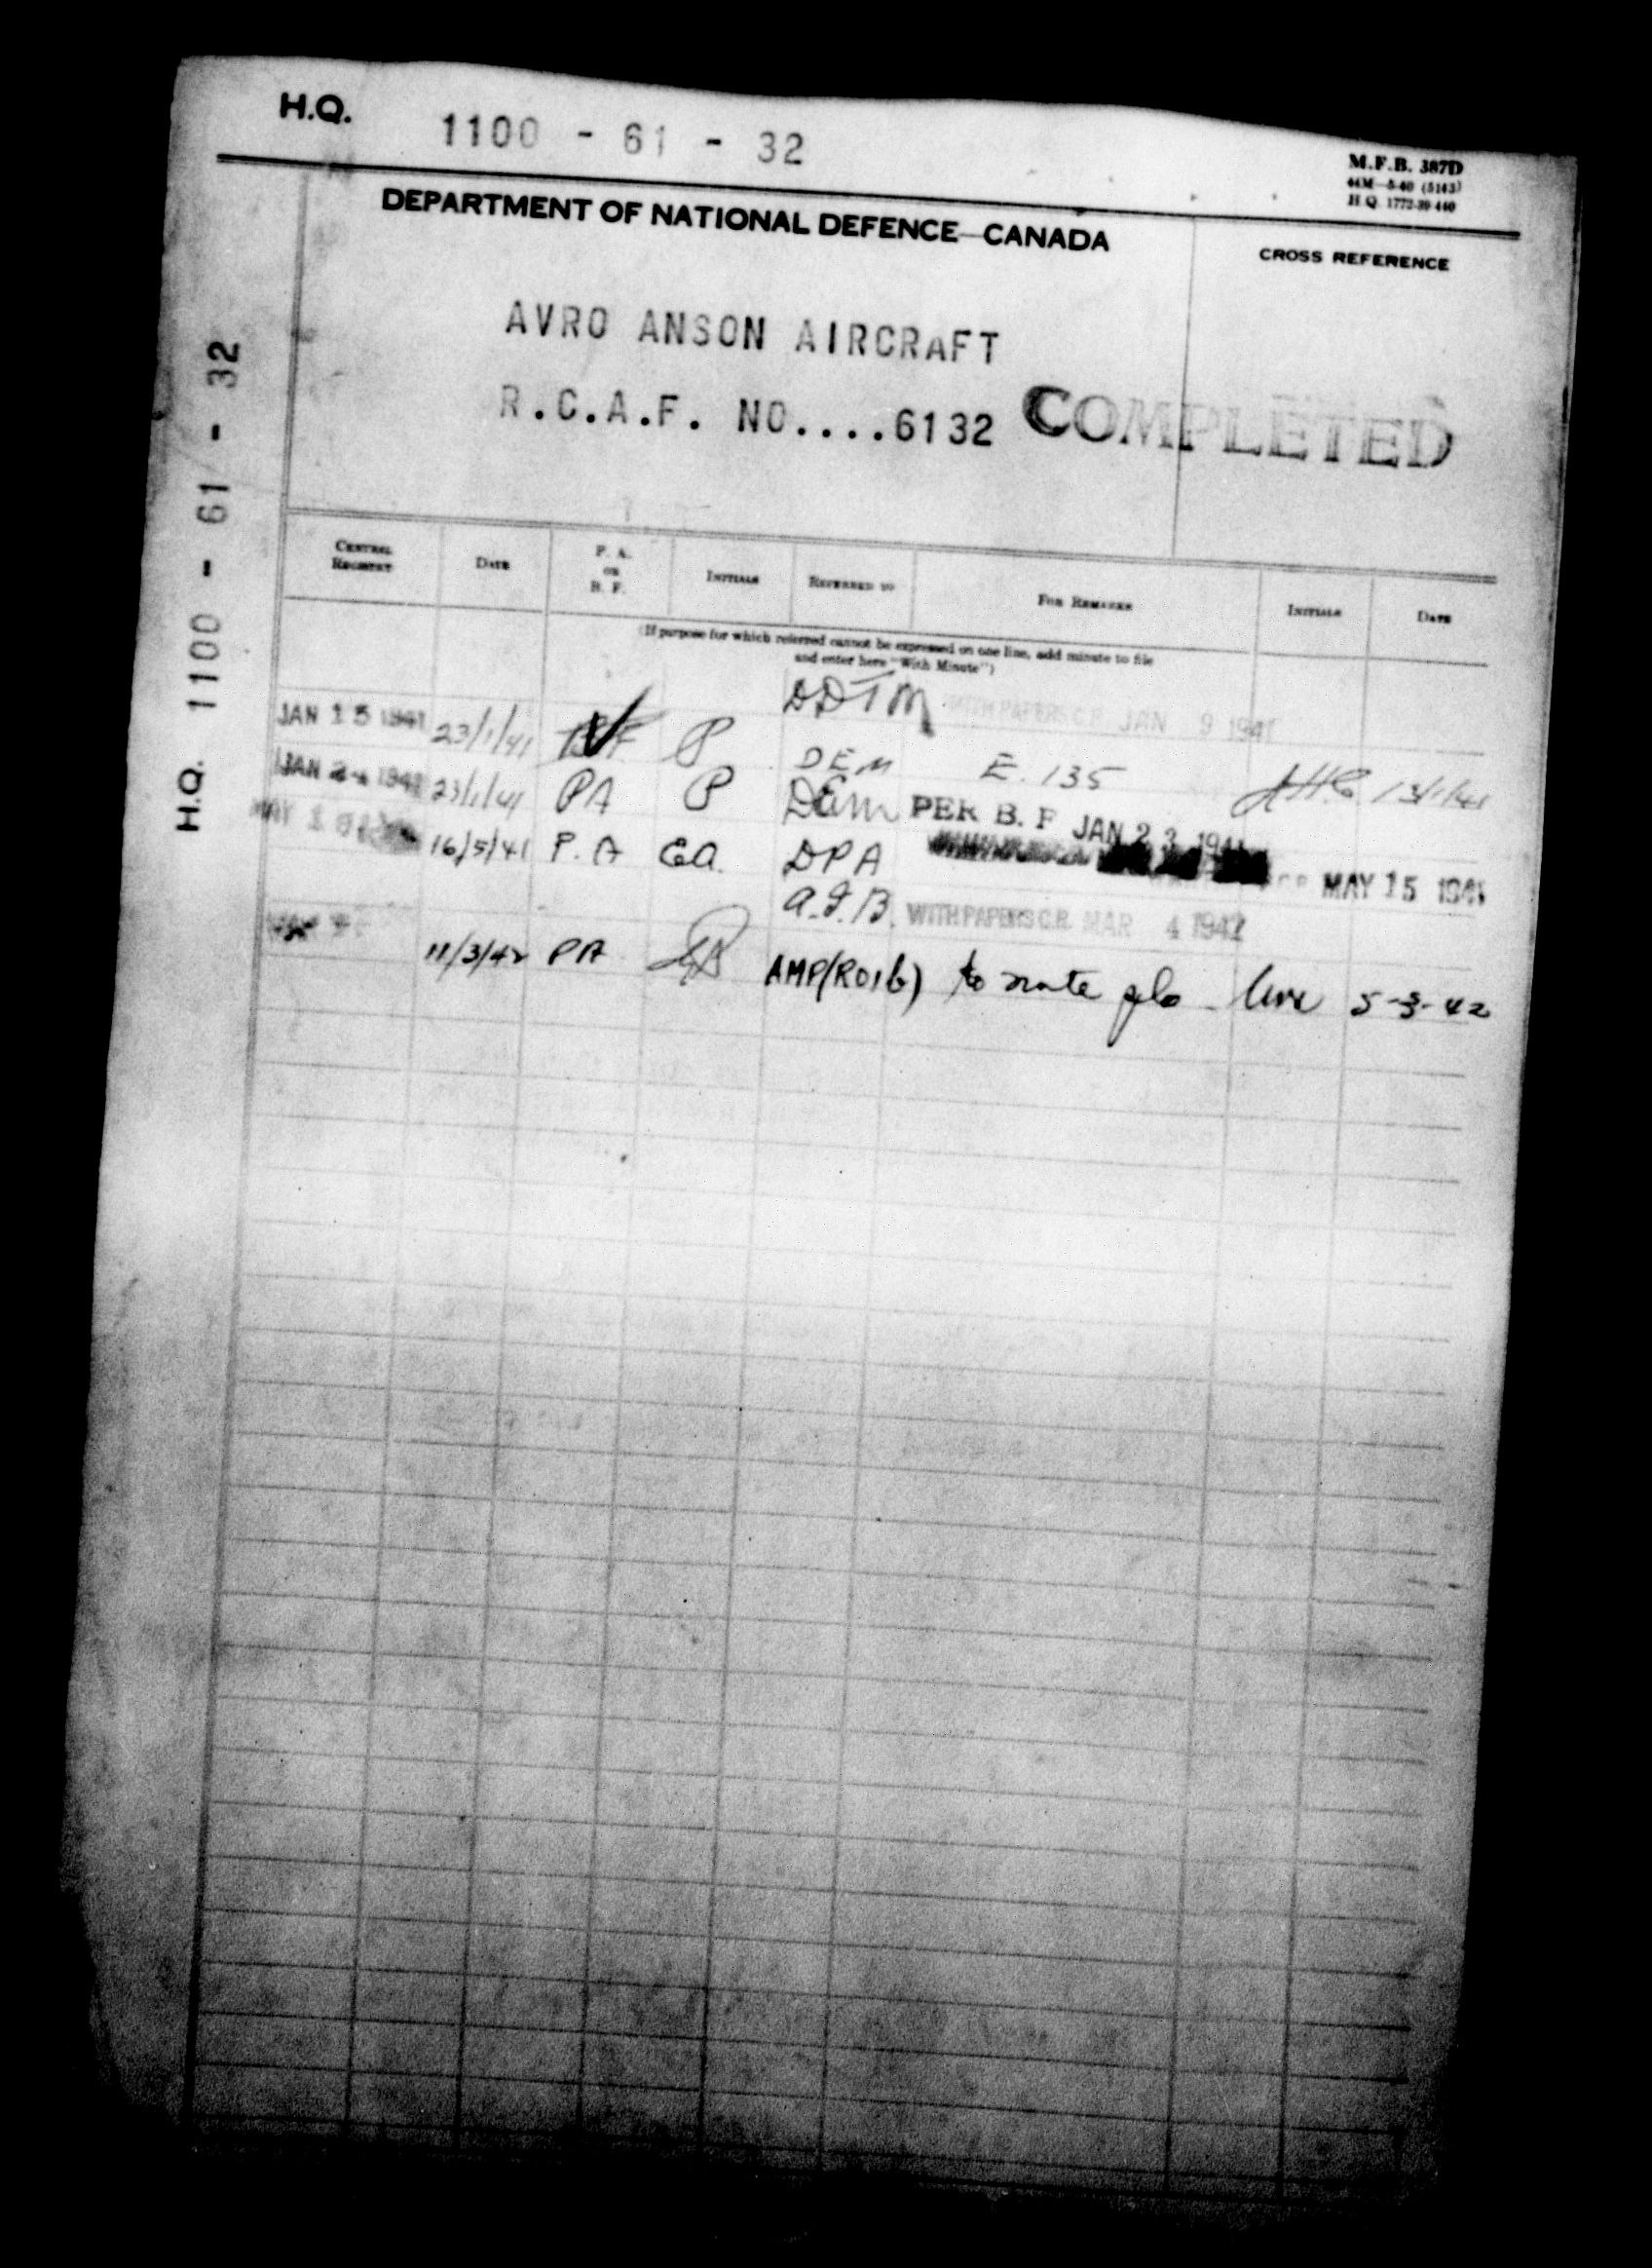 H.Q. 1100 - 61 - 32
M.F.B. 387D
44M-5-40 (5143)
H.Q. 1772-39-440
DEPARTMENT OF NATIONAL DEFENCE—CANADA
CROSS REFERENCE
AVRO ANSON AIRCRAFT
R.C.A.F. NO....6132 COMPLETED
H.Q. 1100 - 61 - 32
CENTRAL REGISTRY DATE P. A. OR B. F. INITIALS REFERRED TO FOR REMARKS INITIALS DATE
(If purpose for which referred cannot be expressed on one line, add minute to file
and enter here "With Minute")
DDTM WITH PAPERS C.R. JAN 9 1941
JAN 15 1941 23/1/41 B.F. P DEM E.135 13/1/41
JAN 24 1941 23/1/41 PA P DEM PER B. F JAN 23 1941
MAY 16/5/41 P.A EA. DPA MAY 15 1941
A.I.B. WITH PAPERS C.R. MAR 4 1942
11/3/42 PA AMP(RO1b) to note pls 5-3-42